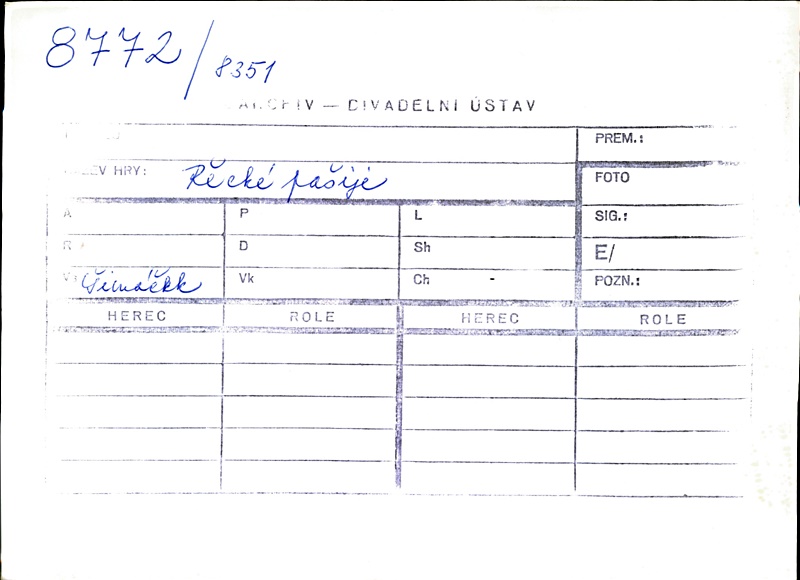 8772/8351
ARCHIV — DIVADELNÍ ÚSTAV
PREM.:
EV HRY: Řecké pašije
FOTO
A P L SIG.:
R D Sh E/
V Šimáček Vk Ch - POZN.:
HEREC ROLE HEREC ROLE